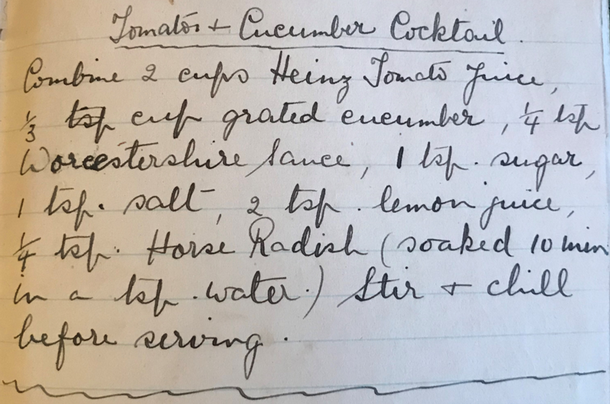 Tomato + Cucumber Cocktail.
Combine 2 cups Heinz Tomato Juice,
1/3 tsp cup grated cucumber, 1/4 tsp
Worcestershire Sauce, 1 tsp. sugar,
1 tsp. salt, 2 tsp. lemon juice,
1/4 tsp. Horse Radish (soaked 10 min
in a tsp. water.) Stir + chill
before serving.